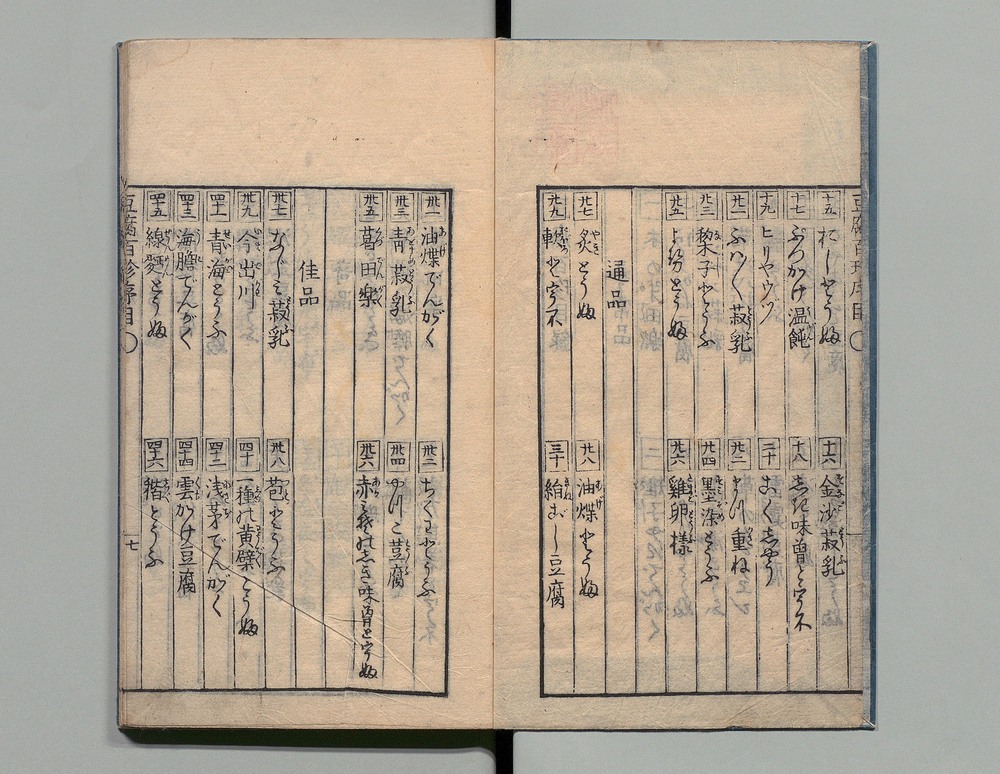 豆腐百珍序目
十五 おしとうふ
十六 金沙菽乳
十七 ぶつかけ温飩
十八 しき味噌とうふ
十九 ヒリヤウヅ
二十 こくしやう
廿一 ふは〱菽乳
廿二 まつ重ね
廿三 梨子とうふ
廿四 墨染とうふ
廿五 よせとうふ
廿六 鶏卵様
通品
廿七 炙とうふ
廿八 油煠とうふ
廿九
三十 絹ごし豆腐
卅一 油煠でんがく
卅二 ちくわとうふ
卅三 青菽乳
卅四 やつこ豆腐
卅五 葛田楽
卅六 赤みそのしき味噌とうふ
佳品
卅七 なじみ菽乳
卅八 苞とうふ
卅九 今出川とうふ
四十 一種の黄檗とうふ
四十一 青海とうふ
四十二 浅茅でんがく
四十三 海胆でんがく
四十四 雲かけ豆腐
四十五 線麪とうふ
四十六 稭とうふ
豆腐百珍序目 〇 七